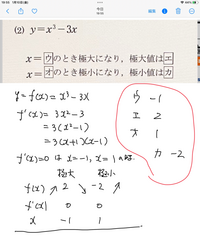 (2) y=x³−3x
x=ウのとき極大になり，極大値はエ
x=オのとき極小になり，極小値はカ
y=f(x)=x³-3x
f'(x)=3x²-3
=3(x²-1)
=3(x+1)(x-1)
f'(x)=0は x=-1, x=1のとき
極大 極小
f(x) ↗ 2 ↘ -2 ↗
f'(x) 0 0
x -1 1
ウ -1
エ 2
オ 1
カ -2